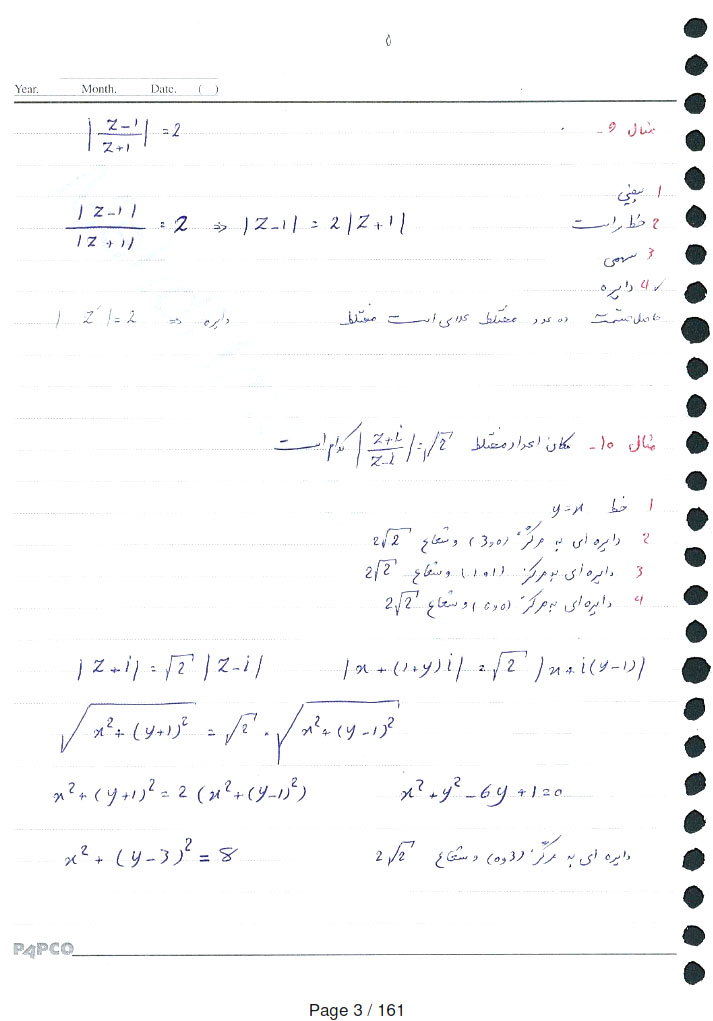 ۵
Year. Month. Date. ( )
مثال ۹- |z-1/z+1| = 2
۱ بیضی
۲ خط راست
|z-1|/|z+1| = 2 ⇒ |z-1| = 2|z+1|
۳ سهمی
✓ ۴ دایره
حاصل قسمت دو عدد مختلط عددی است مختلط |z'| = 2 ⇒ دایره
مثال ۱۰- مکان اعداد مختلط |z+i/z-i| = √2 کدام است
۱ خط y=x
۲ دایره ای به مرکز (3,0) و شعاع 2√2
۳ دایره ای به مرکز (1,0) و شعاع 2√2
۴ دایره ای به مرکز (0,0) و شعاع 2√2
|z+i| = √2 |z-i| |x+(1+y)i| = √2 |x+i(y-1)|
√x²+(y+1)² = √2 . √x²+(y-1)²
x²+(y+1)² = 2(x²+(y-1)²) x²+y²-6y+1=0
x²+(y-3)² = 8 دایره ای به مرکز (3,0) و شعاع 2√2
PAPCO
Page 3 / 161